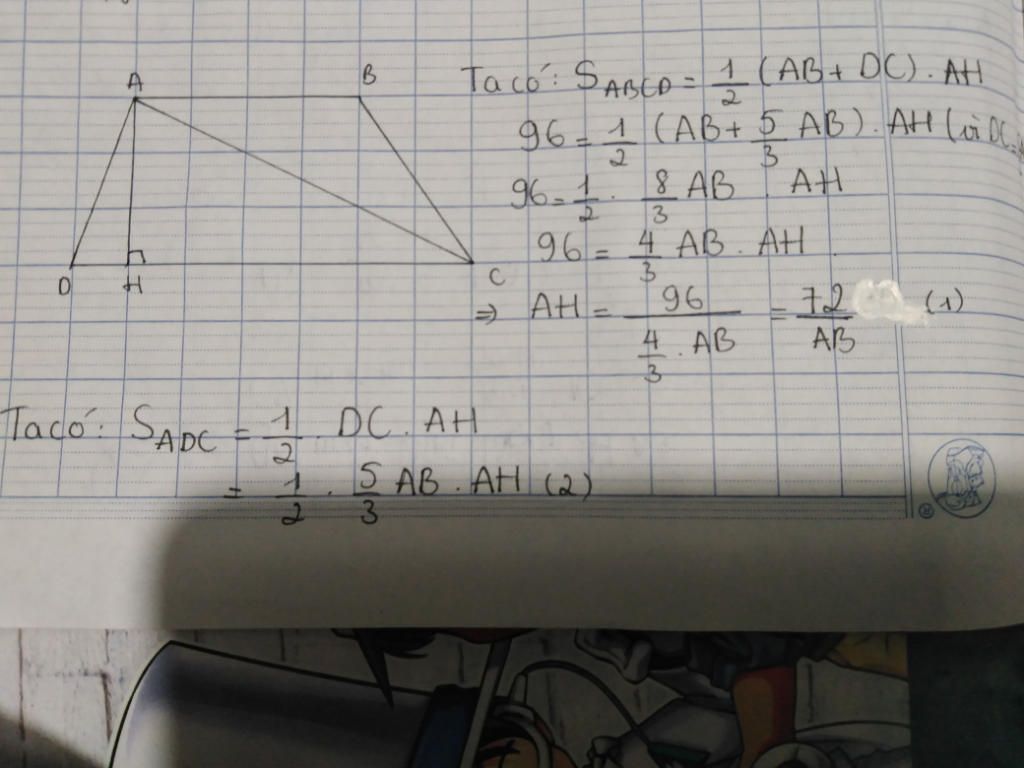 A B
D H C
Ta có: S_ABCD = 1/2 (AB + DC). AH
96 = 1/2 (AB + 5/3 AB). AH (vì DC =
96 = 1/2 . 8/3 AB . AH
96 = 4/3 AB . AH
⇒ AH = 96/(4/3 . AB) = 72/AB (1)
Ta có: S_ADC = 1/2 . DC . AH
= 1/2 . 5/3 AB . AH (2)
®